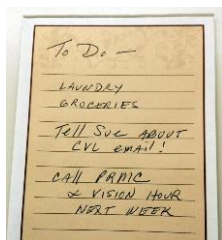 To Do —
LAUNDRY
GROCERIES
Tell Sue ABOUT
CVL email!
CALL PRMIC
& VISION HOUR
NEXT WEEK